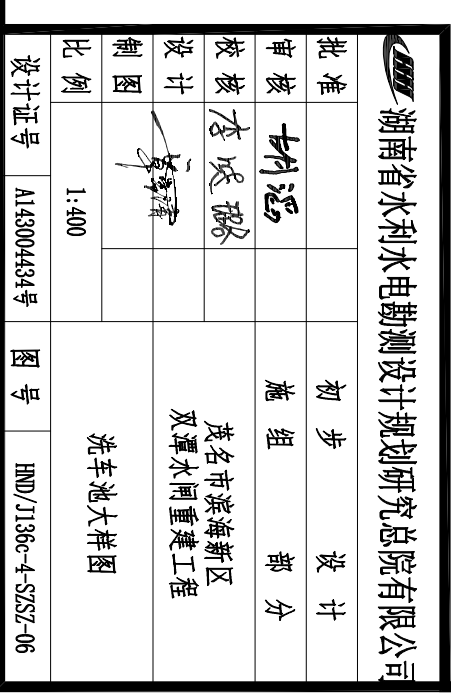 湖南省水利水电勘测设计规划研究总院有限公司
批准 初步 设计
审核 施组 部分
校核 李
茂名市滨海新区
双潭水闸重建工程
设计
制图
洗车池大样图
比例 1:400
设计证号 A143004434号 图号 HND/J136c-4-SZSZ-06